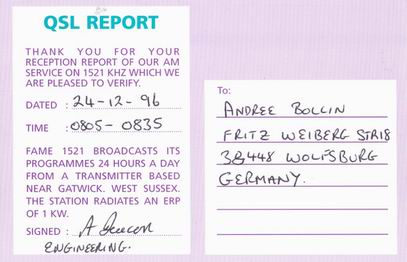 QSL REPORT
THANK YOU FOR YOUR
RECEPTION REPORT OF OUR AM
SERVICE ON 1521 KHZ WHICH WE
ARE PLEASED TO VERIFY.
DATED : 24-12-96
TIME : 0805-0835
FAME 1521 BROADCASTS ITS
PROGRAMMES 24 HOURS A DAY
FROM A TRANSMITTER BASED
NEAR GATWICK. WEST SUSSEX.
THE STATION RADIATES AN ERP
OF 1 KW.
SIGNED : A
ENGINEERING.
To:
ANDREE BOLLIN
FRITZ WEIBERG STR18
38448 WOLFSBURG
GERMANY.